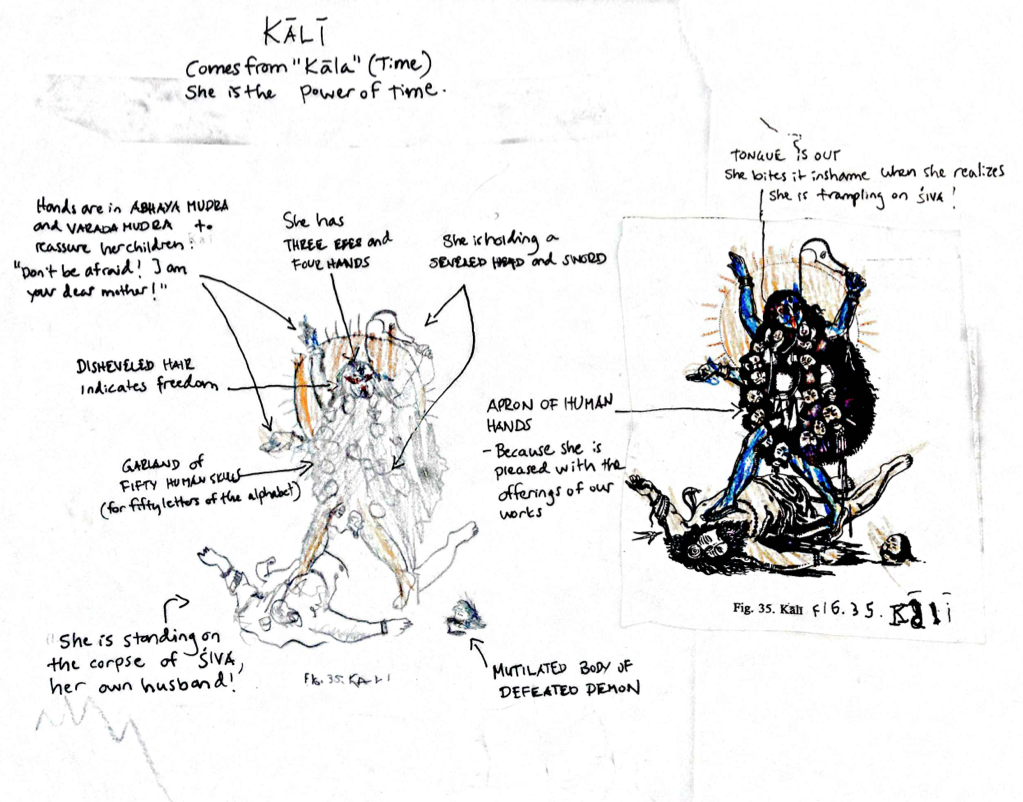 KĀLĪ
Comes from "Kāla" (Time)
She is the power of time.
TONGUE IS OUT
She bites it in shame when she realizes
She is trampling on ŚIVA!
Hands are in ABHAYA MUDRA
and VARADA MUDRA to
reassure her children:
"Don't be afraid! I am
your dear mother!"
She has
THREE EYES and
FOUR HANDS
She is holding a
SEVELED HEAD and SWORD
DISHEVELED HAIR
indicates freedom
GARLAND of
FIFTY HUMAN SKULLS
(for fifty letters of the alphabet)
APRON OF HUMAN
HANDS
- Because she is
pleased with the
offerings of our
works
"She is standing on
the corpse of ŚIVA,
her own husband!
FIG. 35. KALI
MUTILATED BODY OF
DEFEATED DEMON
Fig. 35. Kālī FIG. 35. Kālī